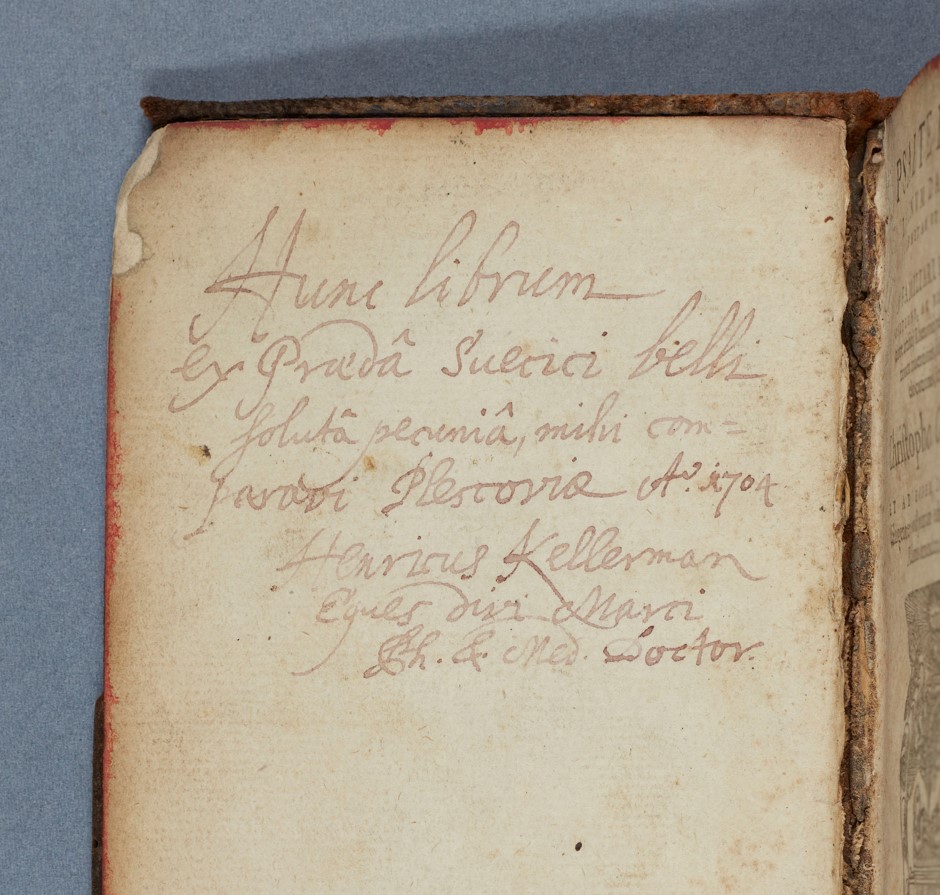 Hunc librum
ex Prædâ Suecici belli
solutâ pecuniâ, mihi com=
paravi Plescoviæ Aº. 1704
Henricus Kellerman
Eques divi Marci
Ph. & Med. Doctor.
PSAITE